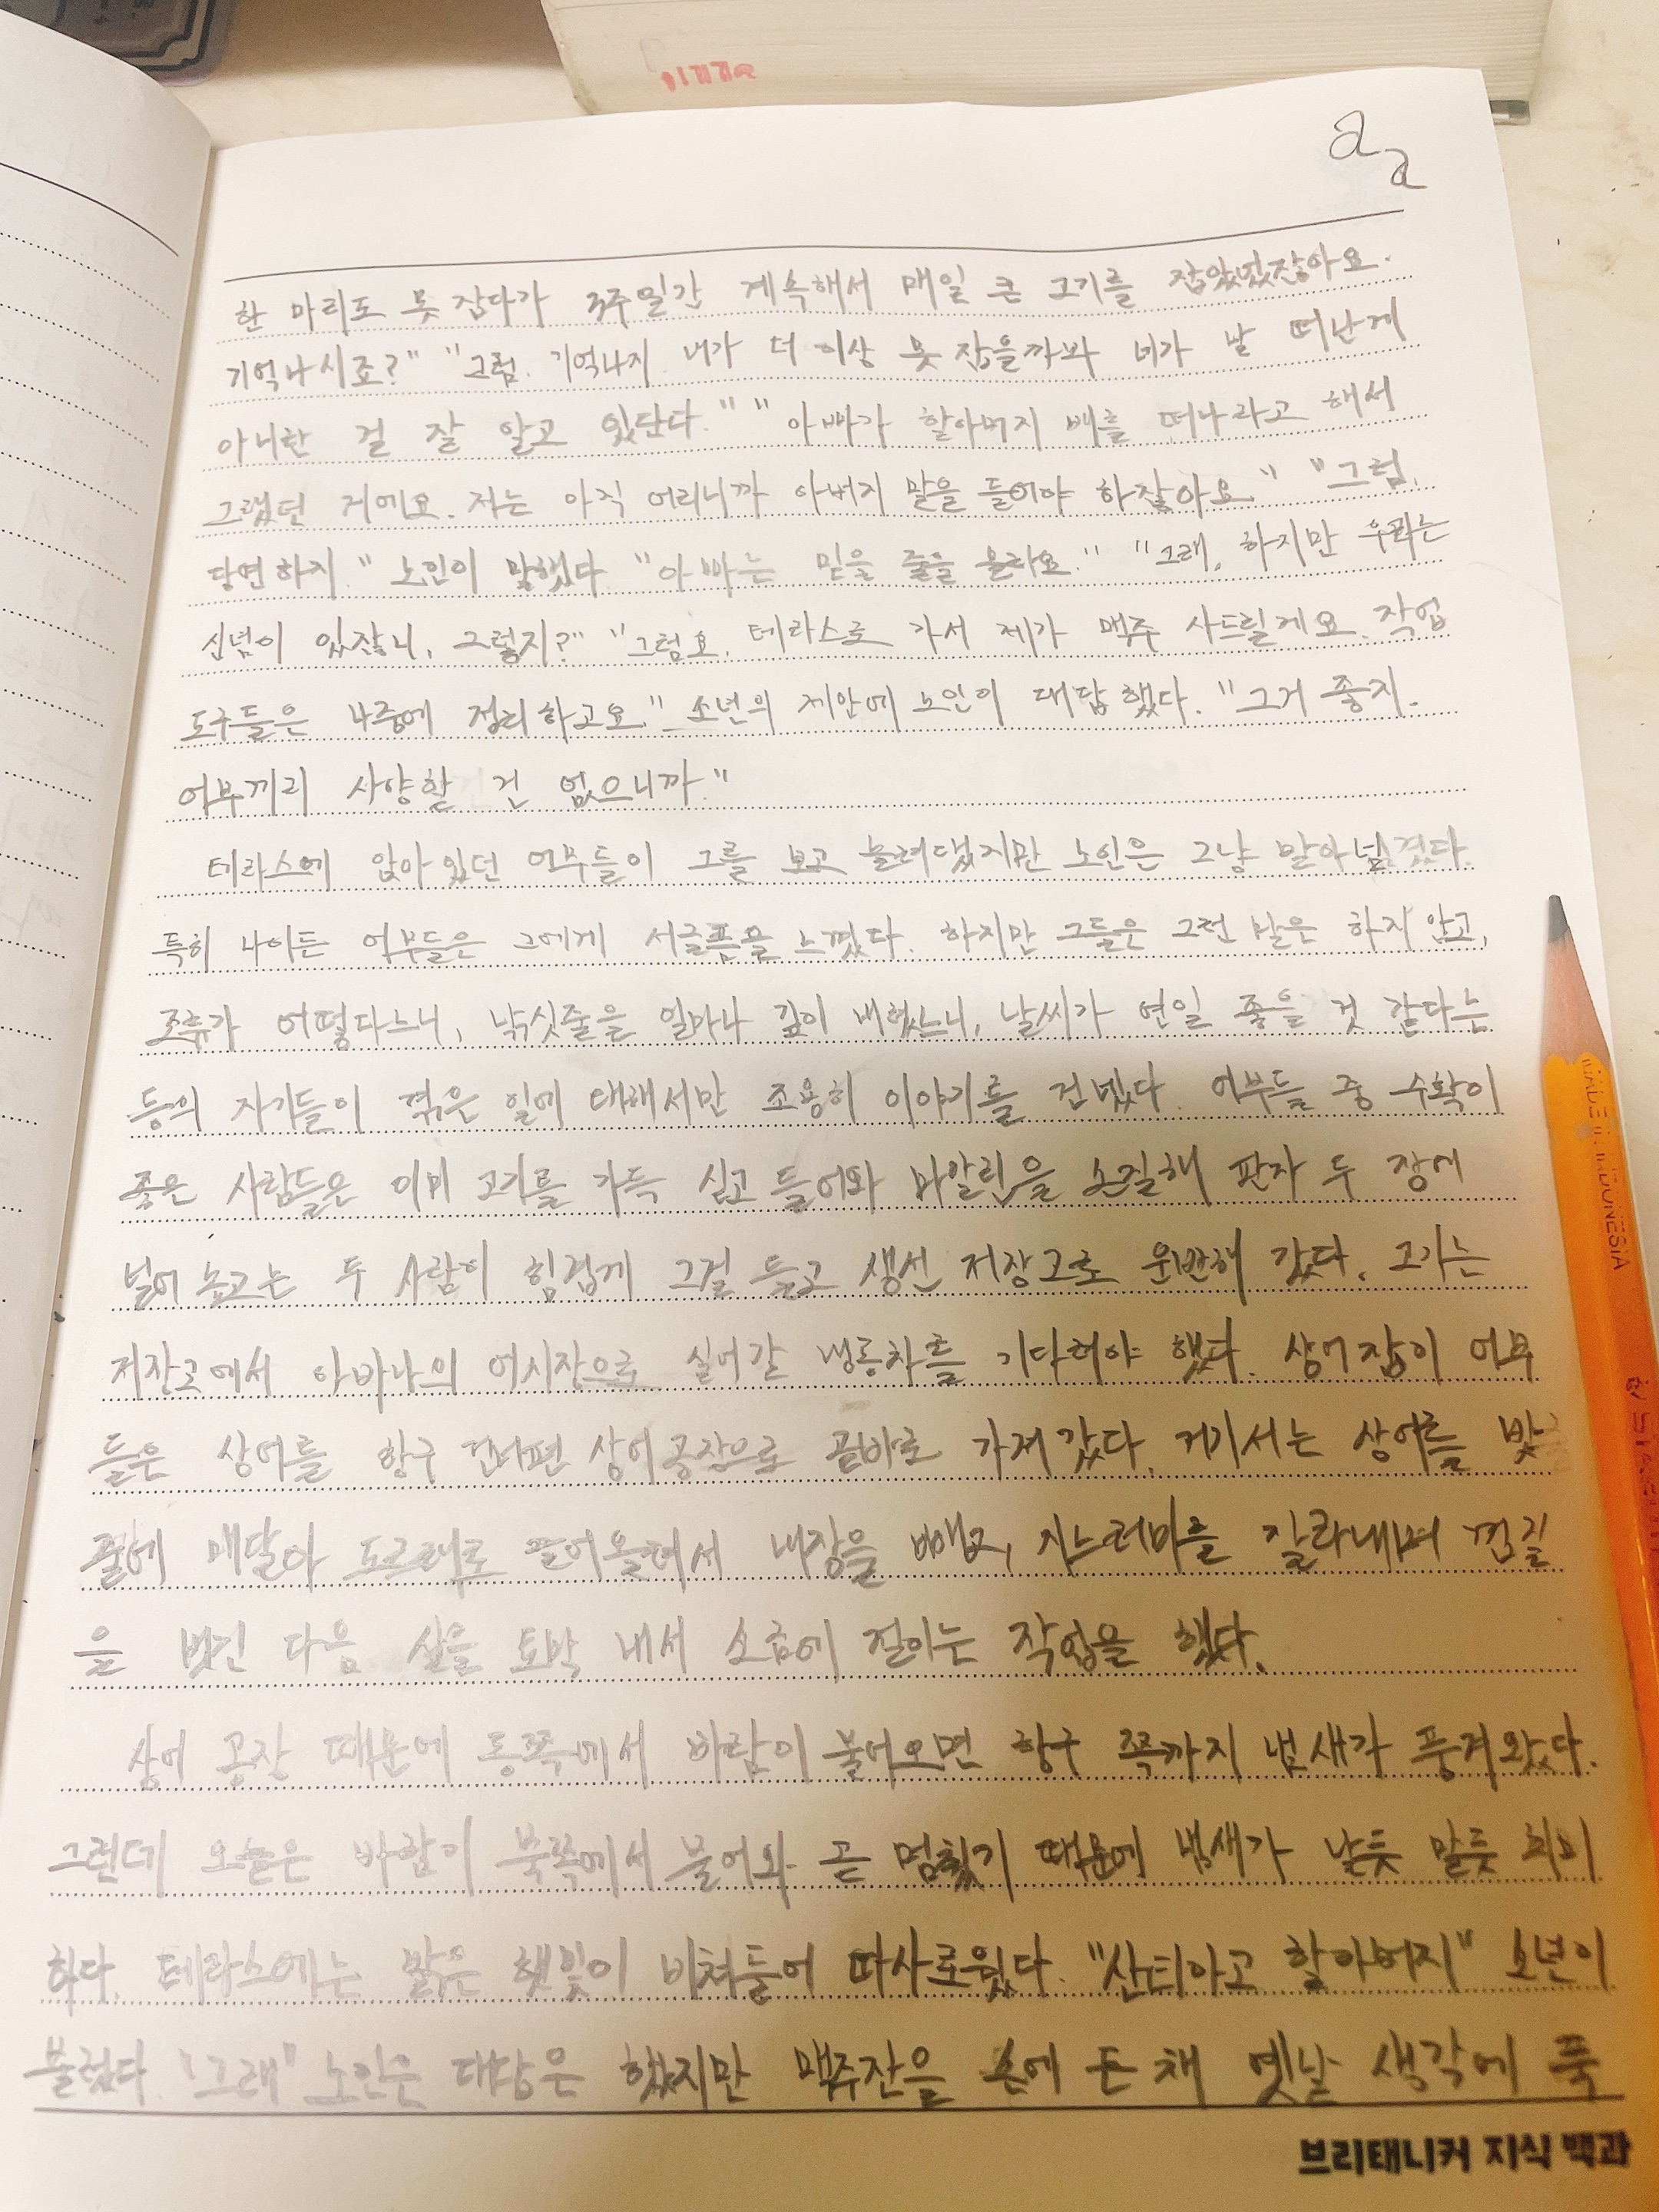 a
a
한 마리도 못 잡다가 3주일간 계속해서 매일 큰 고기를 잡았었잖아요.
기억나시죠?" "그럼. 기억나지. 내가 더 이상 못 잡을까봐 네가 날 떠난게
아니란 걸 잘 알고 있단다." "아빠가 할아버지 배를 떠나라고 해서
그랬던 거에요. 저는 아직 어리니까 아버지 말을 들어야 하잖아요." "그럼,
당연하지." 노인이 말했다. "아빠는 믿을 줄을 몰라요." "그래, 하지만 우리는
신념이 있잖니, 그렇지?" "그럼요. 테라스로 가서 제가 맥주 사드릴게요. 작업
도구들은 나중에 정리하고요." 소년의 제안에 노인이 대답했다. "그거 좋지.
어부끼리 사양할 건 없으니까."
테라스에 앉아있던 어부들이 그를 보고 놀려댔지만 노인은 그냥 받아넘겼다.
특히 나이든 어부들은 그에게 서글픔을 느꼈다. 하지만 그들은 그런 말은 하지 않고,
조류가 어떻다느니, 낚싯줄을 얼마나 깊이 내렸느니, 날씨가 연일 좋을 것 같다는
등의 자기들이 겪은 일에 대해서만 조용히 이야기를 건넸다. 어부들 중 수확이
좋은 사람들은 이미 고기를 가득 싣고 들어와 마알린을 손질해 판자 두 장에
널어 놓고는 두 사람이 힘겹게 그걸 들고 생선 저장고로 운반해 갔다. 고기는
저장고에서 아바나의 어시장으로 실어갈 냉동차를 기다려야 했다. 상어잡이 어부
들은 상어를 항구 건너편 상어공장으로 곧바로 가져갔다. 거기서는 상어를 밧
줄에 매달아 도르래로 끌어올려서 내장을 빼고, 지느러미를 잘라내며 껍질
을 벗긴 다음 살을 토막 내서 소금에 절이는 작업을 했다.
상어 공장 때문에 동쪽에서 바람이 불어오면 항구 쪽까지 냄새가 풍겨왔다.
그런데 오늘은 바람이 북쪽에서 불어와 곧 멈췄기 때문에 냄새가 날듯 말듯 희미
하다. 테라스에는 밝은 햇빛이 비쳐들어 따사로웠다. "산티아고 할아버지" 소년이
불렀다. "그래" 노인은 대답은 했지만 맥주잔을 손에 든 채 옛날 생각에 푹
브리태니커 지식 백과
MADE IN INDONESIA